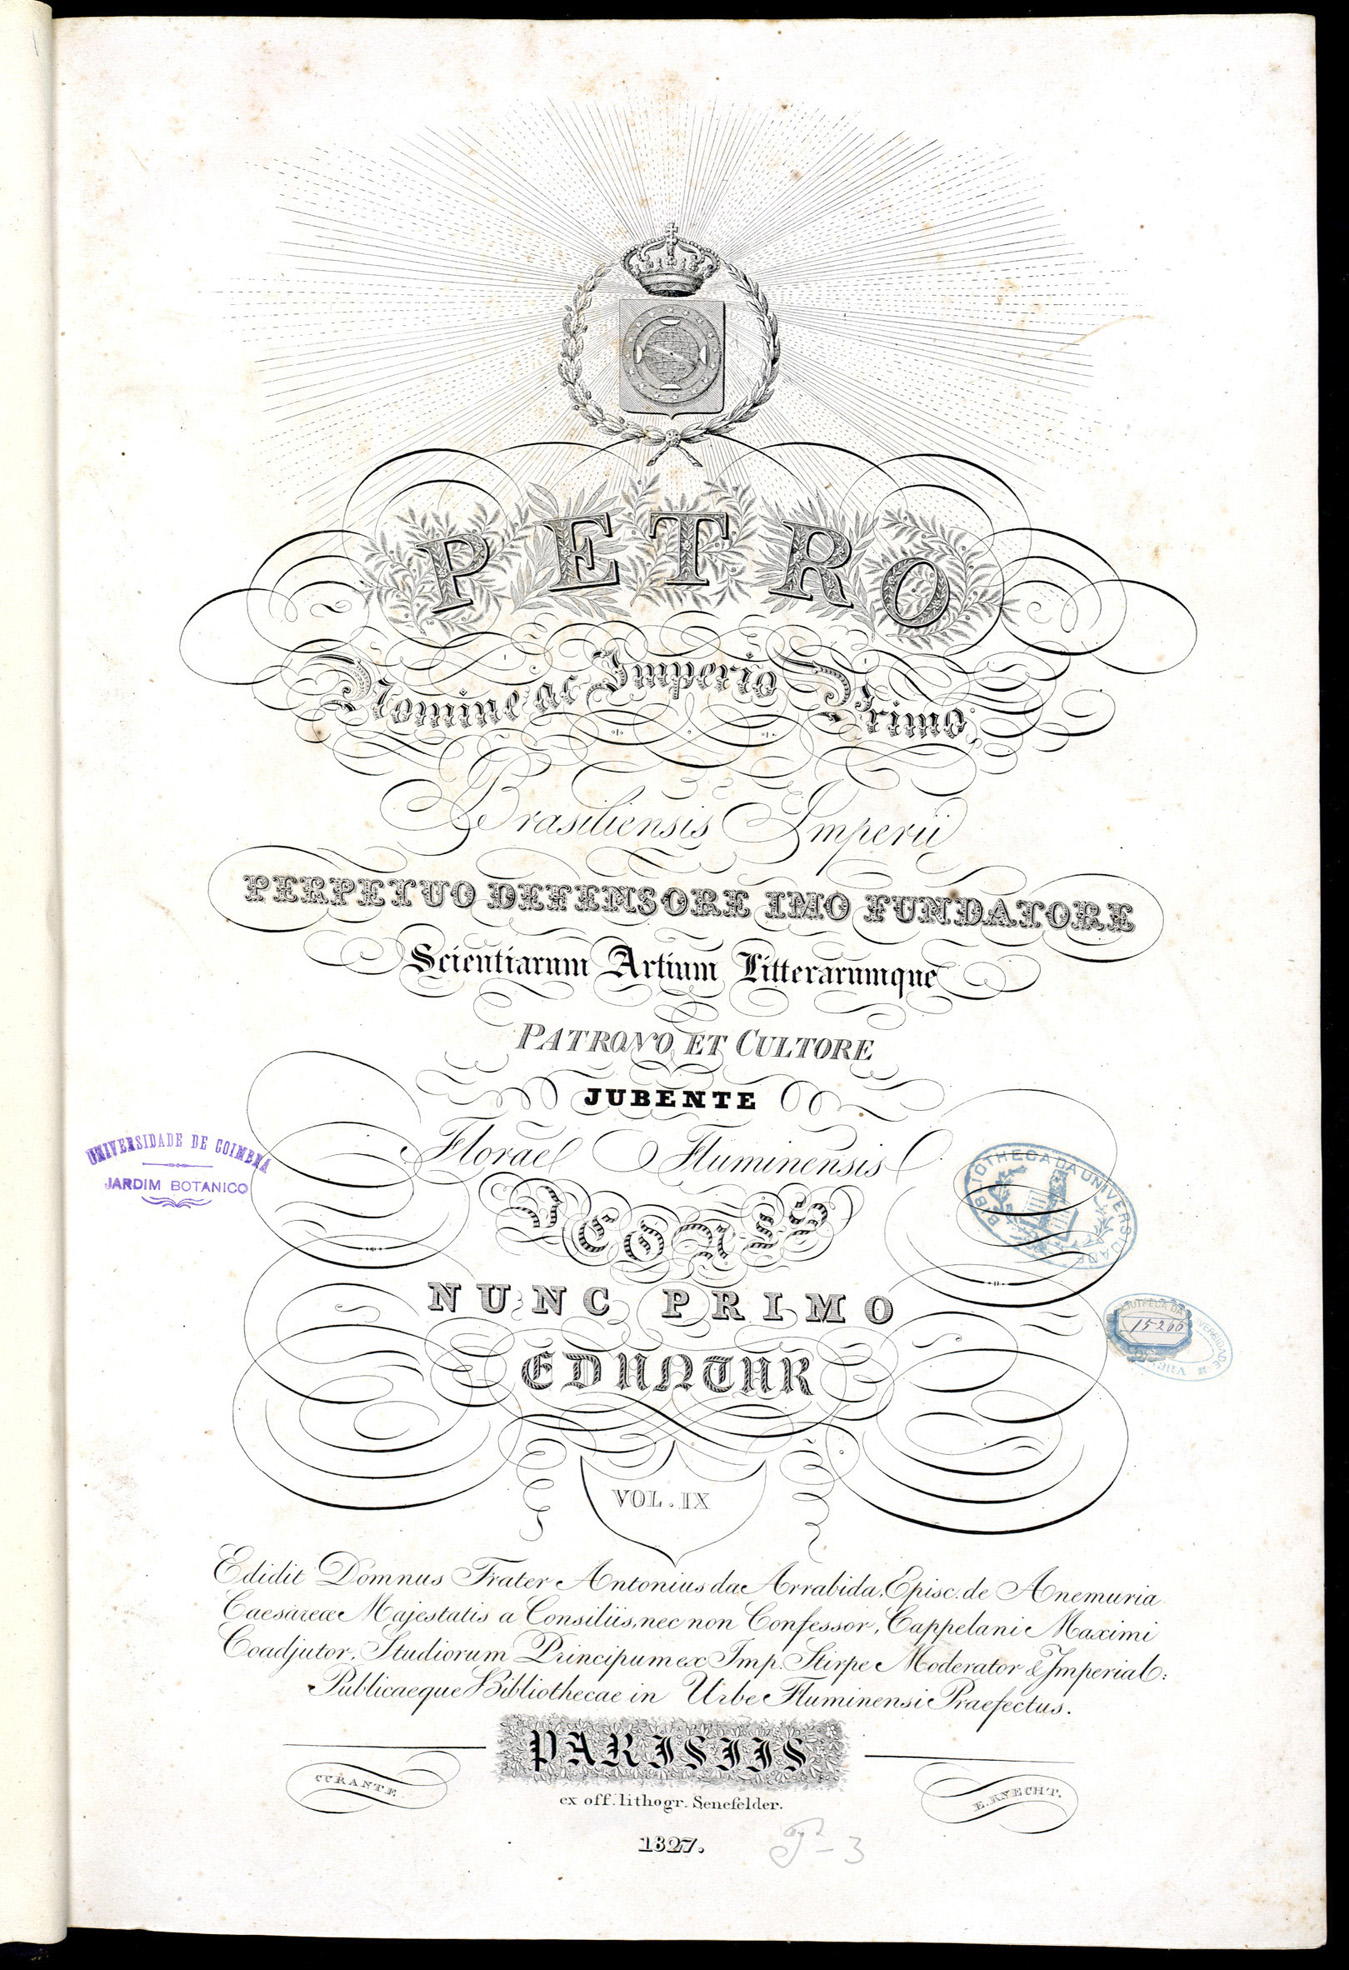 PETRO
Nomine ac Imperio Primo,
Brasiliensis Imperii
PERPETUO DEFENSORE IMO FUNDATORE
Scientiarum Artium Litterarumque
PATRONO ET CULTORE
JUBENTE
Florae Fluminensis
ICONES
NUNC PRIMO
EDUNTUR
VOL. IX
UNIVERSIDADE DE COIMBRA
JARDIM BOTANICO
BIBLIOTHECA DA UNIVERSIDADE
15266
Edidit Domnus Frater Antonius da Arrabida, Episc. de Anemuria
Caesareae Majestatis a Consiliis, nec non Confessor, Cappelani Maximi
Coadjutor, Studiorum Principum ex Imp. Stirpe Moderator & Imperial:
Publicaeque Bibliothecae in Urbe Fluminensi Praefectus.
PARISIIS
CURANTE E. KNECHT.
ex off. lithogr. Senefelder.
1827.